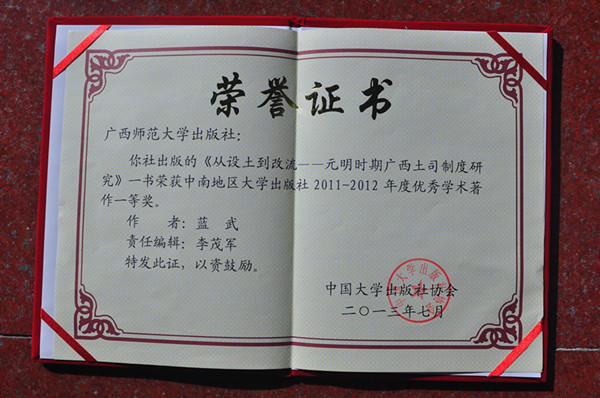 荣誉证书
广西师范大学出版社：
你社出版的《从设土到改流——元明时期广西土司制度研
究》一书荣获中南地区大学出版社2011-2012年度优秀学术著
作一等奖。
作　者：蓝　武
责任编辑：李茂军
特发此证，以资鼓励。
中国大学出版社协会
二〇一三年七月